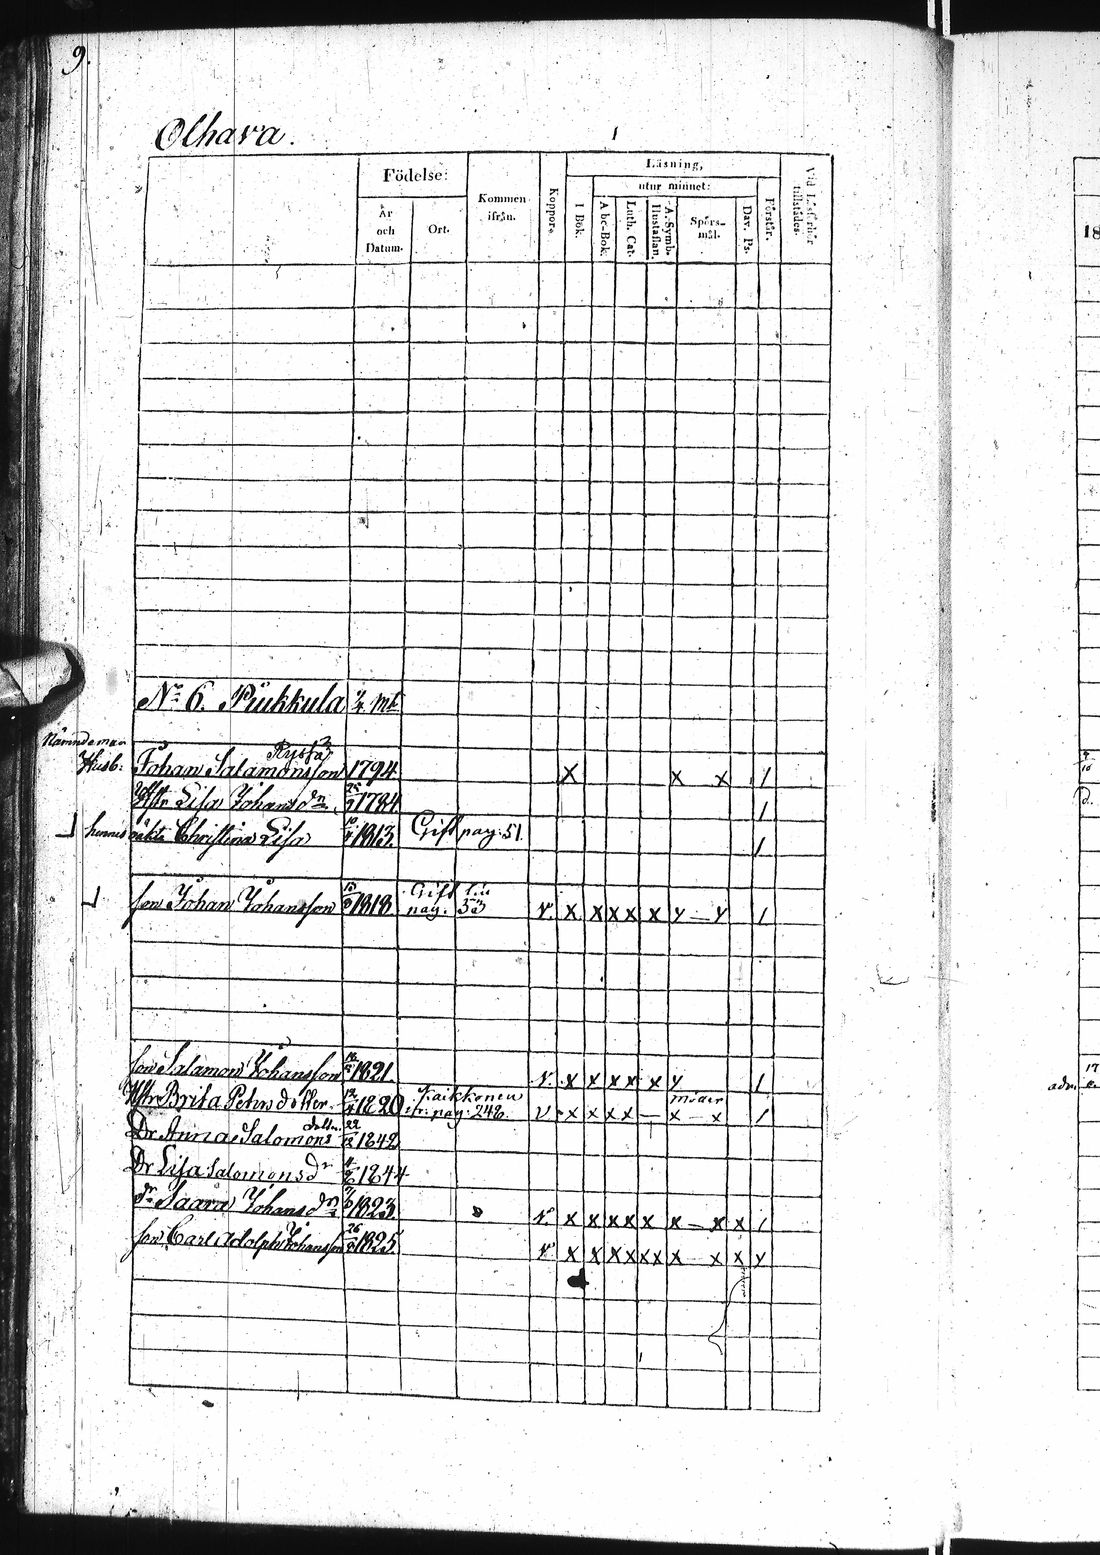 9.
Olhava.
Födelse:
Kommen ifrån.
Koppor.
Läsning,
utur minnet:
Vid Läsförhör tillstädes.
År och Datum.
Ort.
I Bok.
Abc-Bok.
Luth. Cat.
Hustaflan.
A. Symb.
Spörs-mål.
Dav. Ps.
Förstår.
18
No 6. Piukkula 1/4 mtl
Nämndeman
Husb. Johan Salamonsson 1794 X X X /
Hstr Lisa Johansdr 1784 /
hennes oäkta Christina Lisa 1813. Gift pag. 51. /
son Johan Johansson 1818 Gift till pag. 53 v. X X X X X y — y /
son Salamon Johansson 1821. v. X X X X X y /
Hstr Brita Petersdotter 1820 Kaikkonen fr. pag. 248. v X X X X — X — X /
Dr Anna Salomons dottr. 22/12 1842
Dr Lisa Salomonsdr 1844
dr Saara Johansdr 1823. v. X X X X X X — X X /
son Carl Adolph Johansson 26 1825. v X X X X X X X — X X y